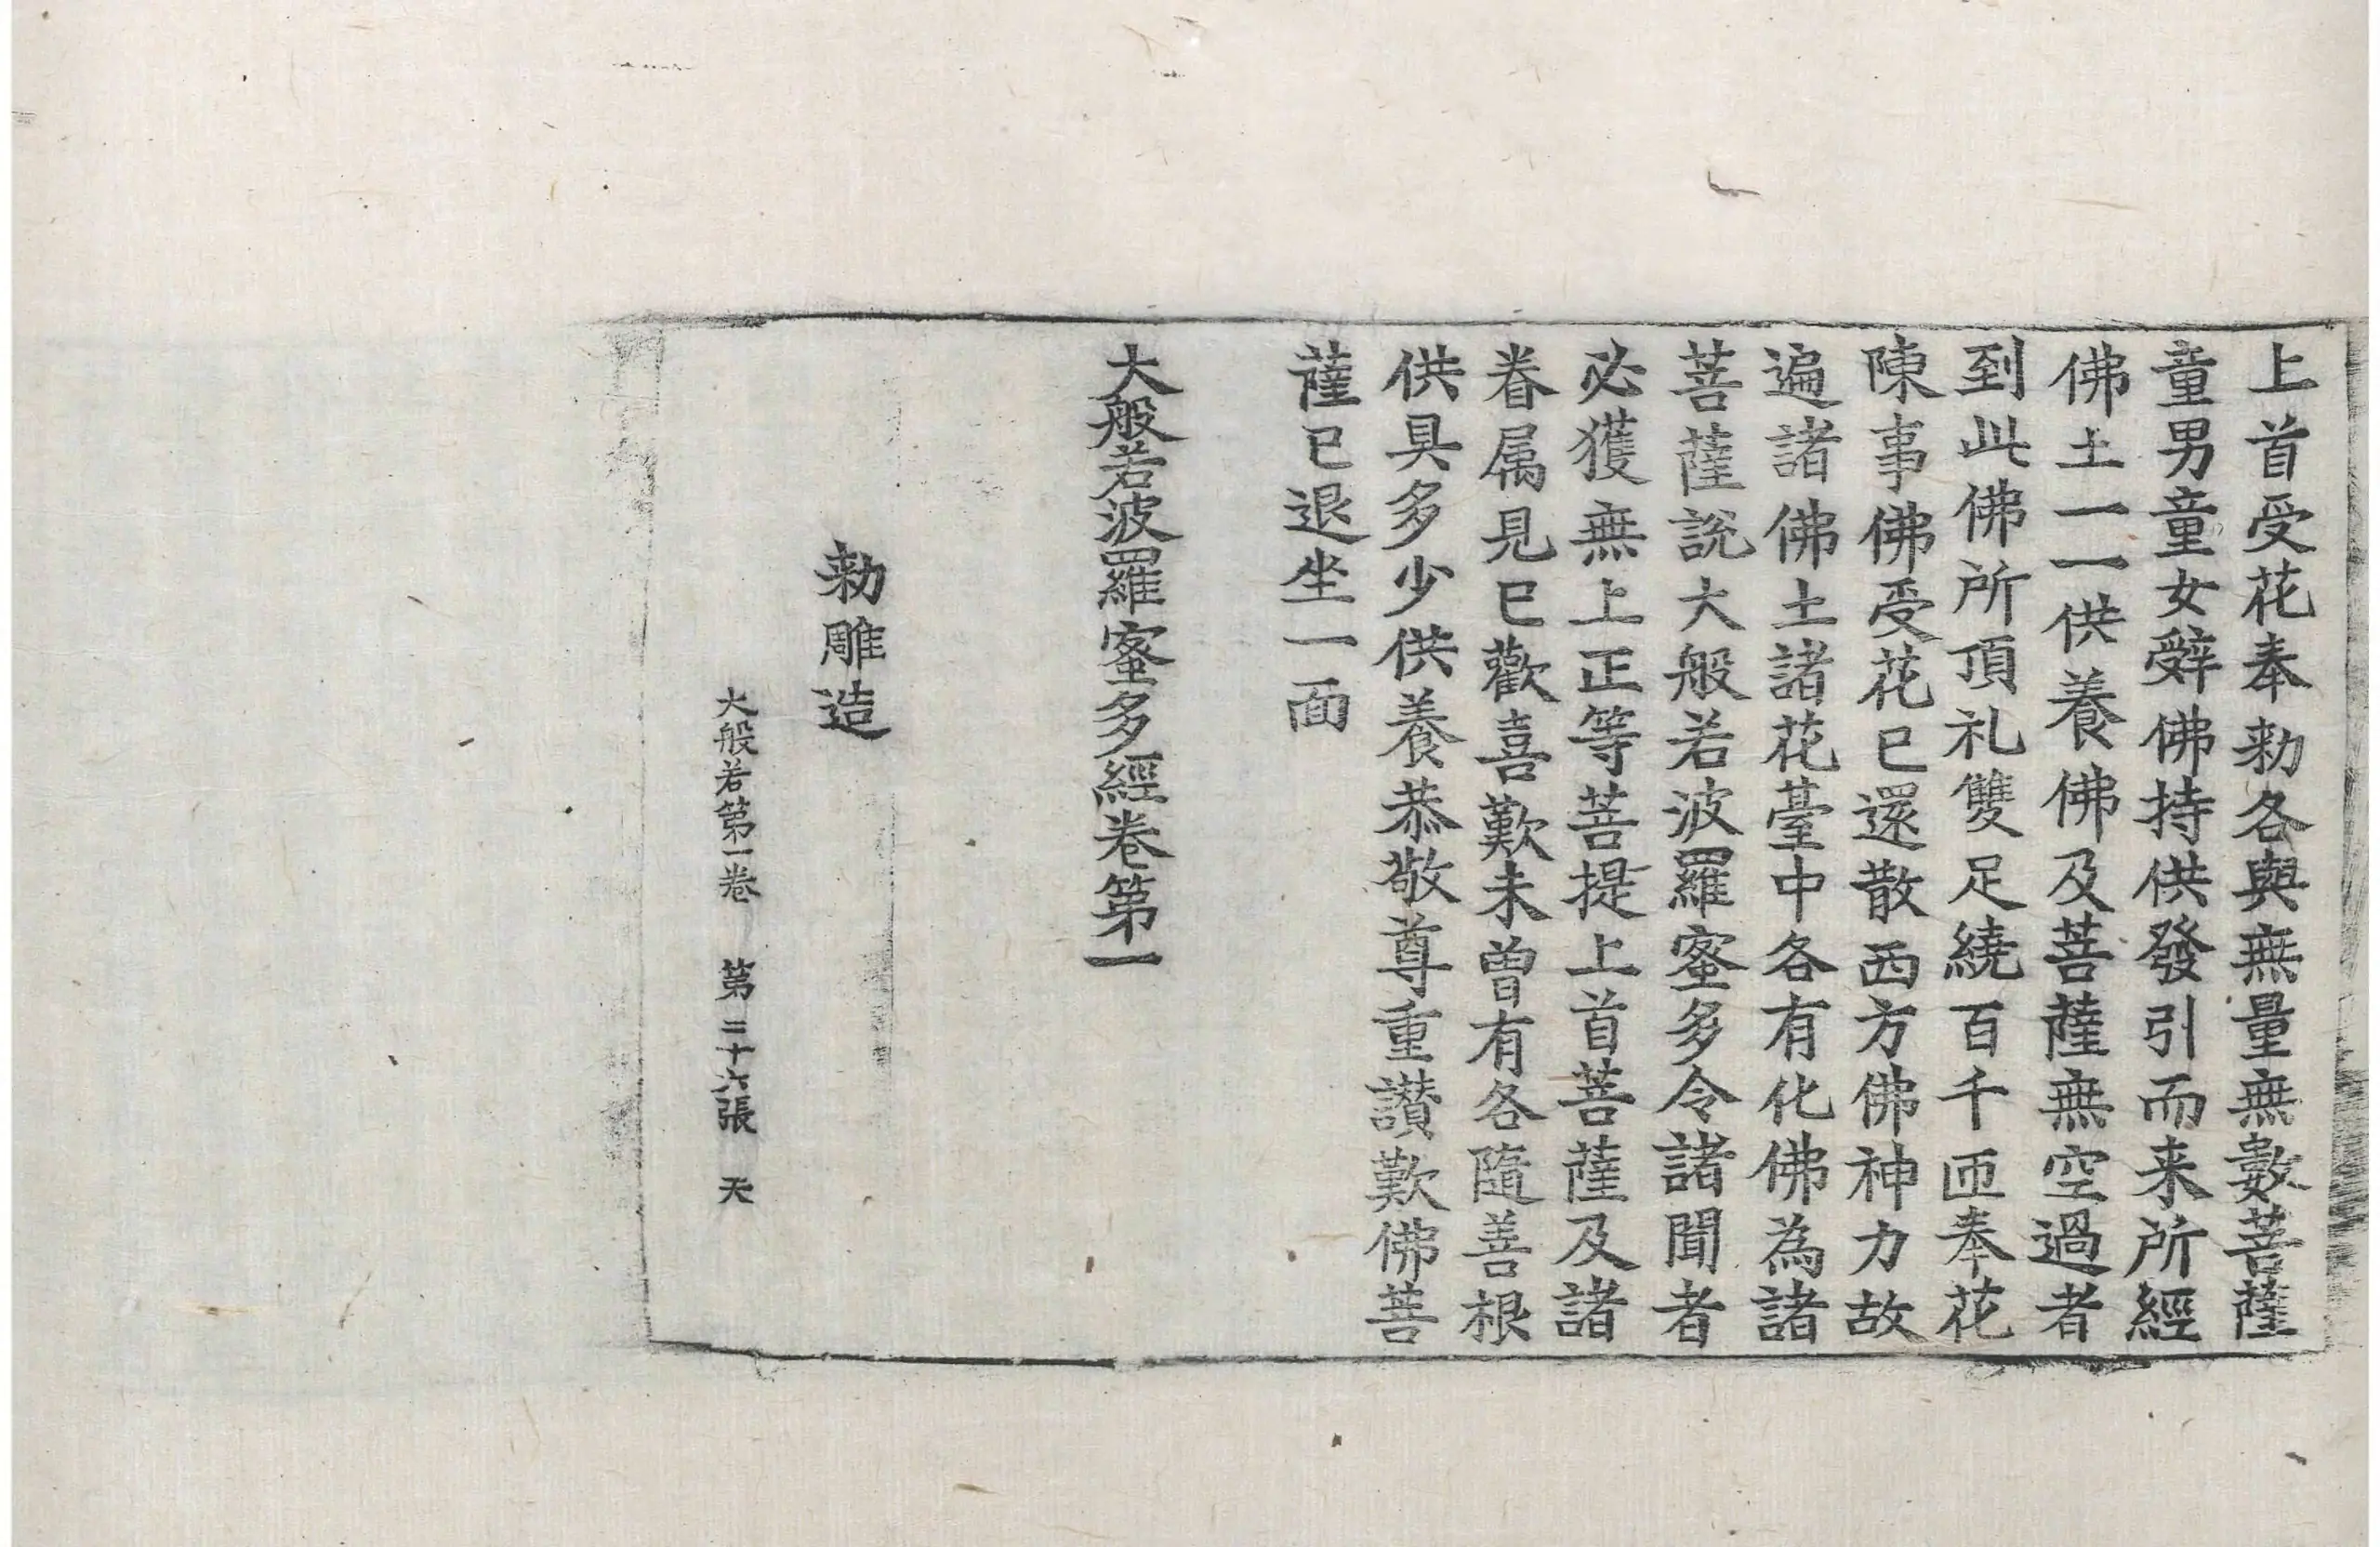 上首受花奉勑各與無量無數菩薩
童男童女辤佛持供發引而来所經
佛土一一供養佛及菩薩無空過者
到此佛所頂礼雙足繞百千匝奉花
陳事佛受花已還散西方佛神力故
遍諸佛土諸花臺中各有化佛為諸
菩薩說大般若波羅蜜多令諸聞者
必獲無上正等菩提上首菩薩及諸
眷属見已歡喜歎未曾有各隨善根
供具多少供養恭敬尊重讃歎佛菩
薩已退坐一面
大般若波羅蜜多經卷第一
勑雕造
大般若第一卷 第二十六張 天